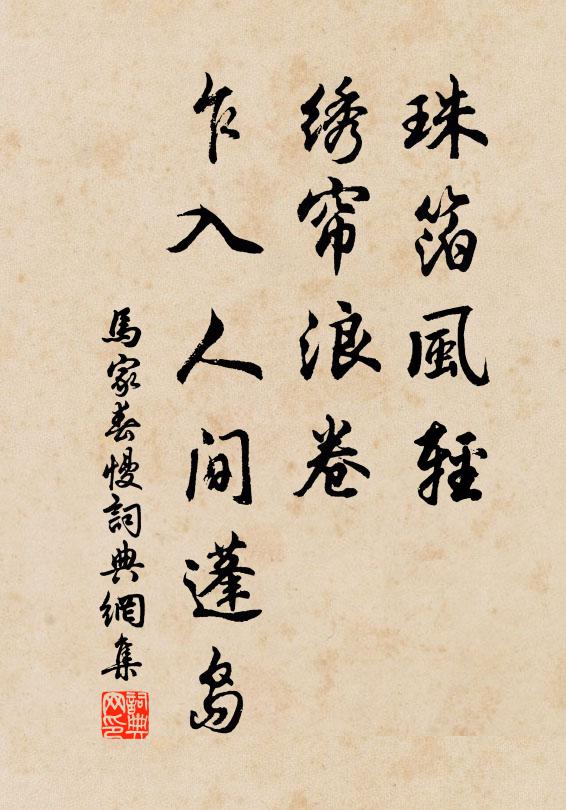 珠箔風輕
绣帘浪卷
乍入人间蓬岛
馬家春慢詞典網集
詞典网印